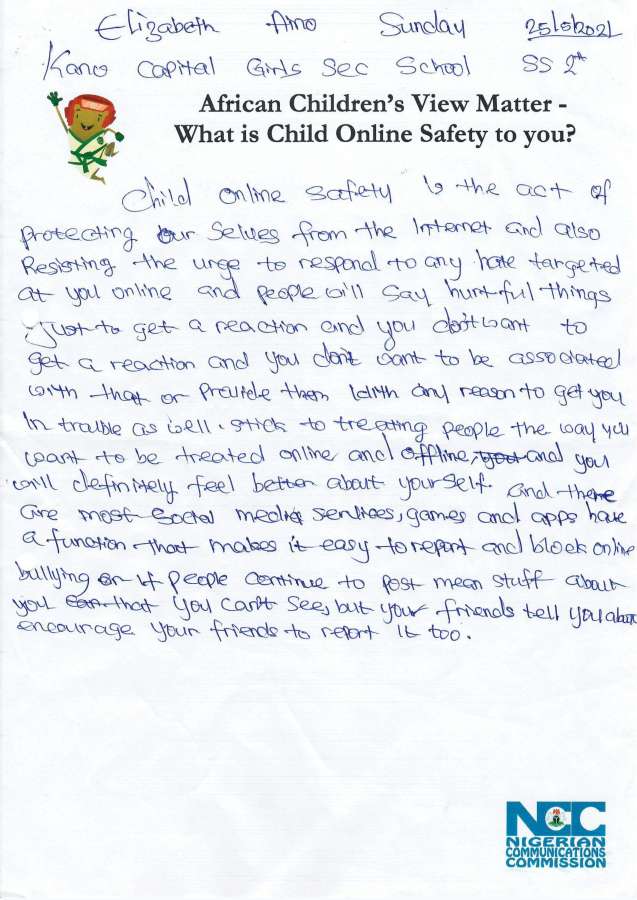 Elizabeth Aino Sunday 25/5/2021
Kano Capital Girls Sec School SS 2
African Children's View Matter -
What is Child Online Safety to you?
Child online safety is the act of
protecting Our Selves from the Internet and also
Resisting the urge to respond to any hate targeted
at you online and people will say hurtful things
Just to get a reaction and you don't want to
get a reaction and you don't want to be associated
with that or Provide them with any reason to get you
In trouble as well. stick to treating people the way you
want to be treated online and offline, you and you
will definitely feel better about yourself. And there
are most social media services, games and apps have
a function that makes it easy to report and block online
bullying or if people continue to post mean stuff about
you that you can't see, but your friends tell you about
encourage your friends to report it too.
NCC
NIGERIAN
COMMUNICATIONS
COMMISSION